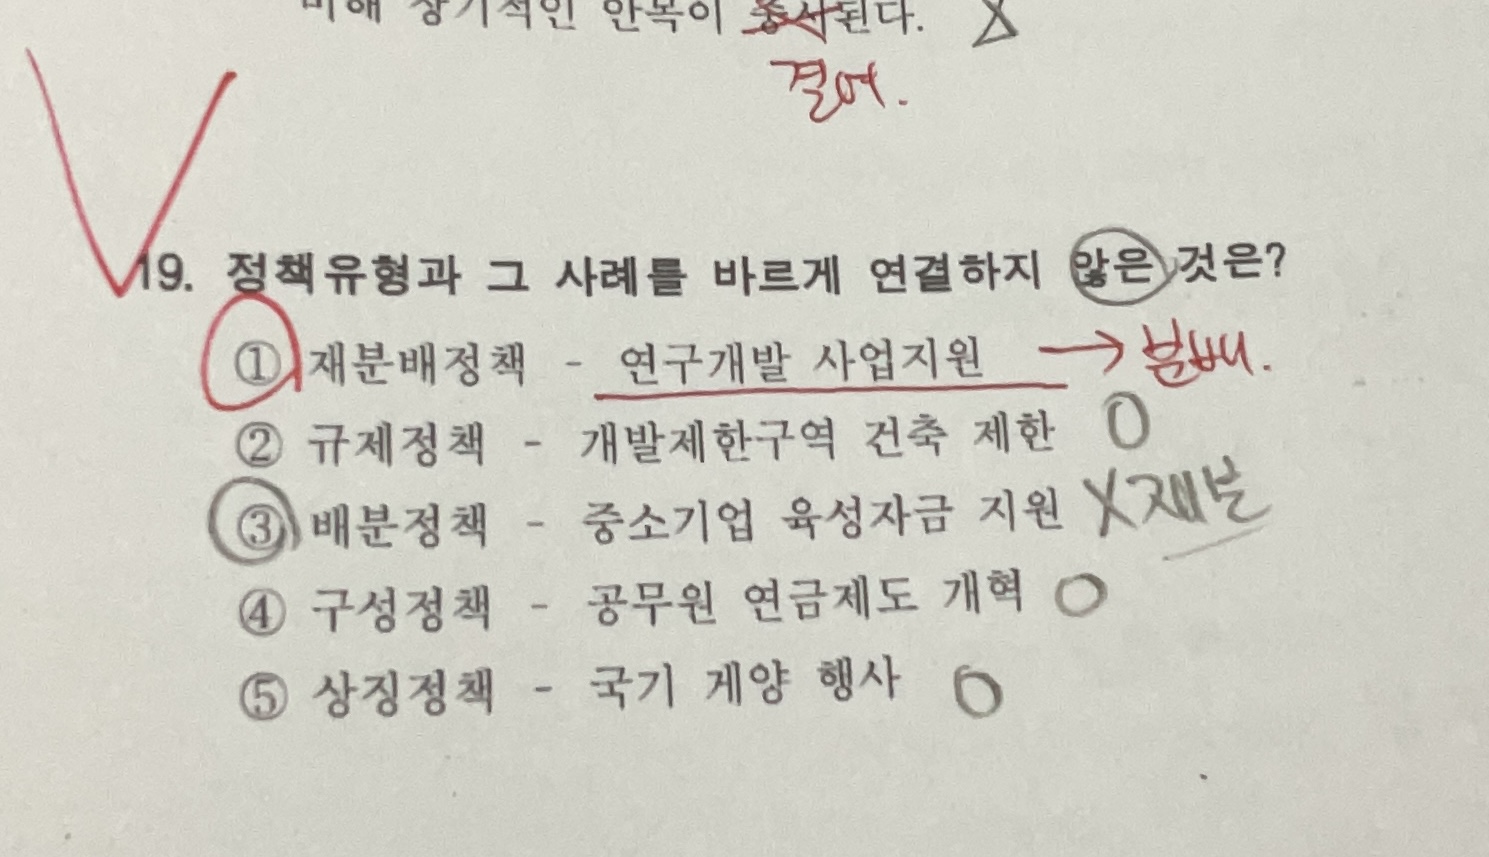 비해 장기적인 안목이 중시된다. X
결여.
19. 정책유형과 그 사례를 바르게 연결하지 않은 것은?
① 재분배정책 - 연구개발 사업지원 → 분배.
② 규제정책 - 개발제한구역 건축 제한 O
③ 배분정책 - 중소기업 육성자금 지원 X 재분
④ 구성정책 - 공무원 연금제도 개혁 O
⑤ 상징정책 - 국기 게양 행사 O